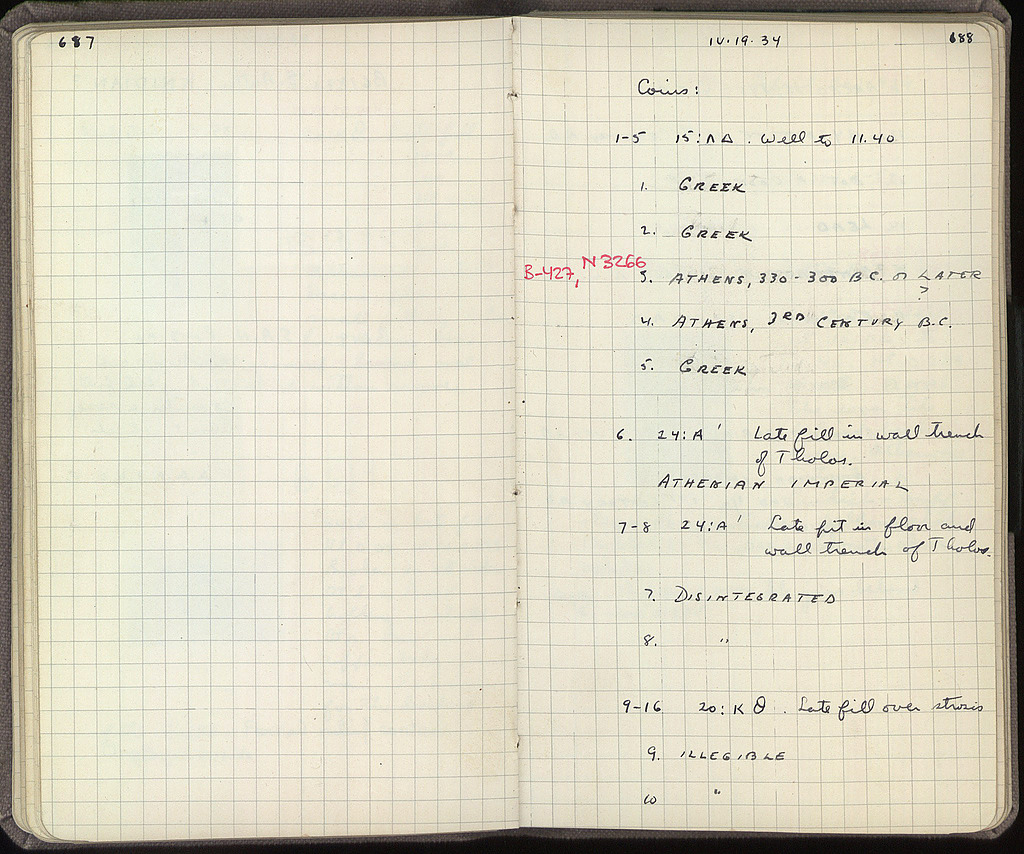 687
IV·19·34 688
Coins:
1-5 15:ΛΔ. Well to 11.40
1. GREEK
2. GREEK
B-427, N3266
3. ATHENS, 330-300 B.C. or LATER
?
4. ATHENS, 3RD CENTURY B.C.
5. GREEK
6. 24:A' Late fill in wall trench
of Tholos.
ATHENIAN IMPERIAL
7-8 24:A' Late pit in floor and
wall trench of Tholos.
7. DISINTEGRATED
8. "
9-16 20:ΚΘ. Late fill over strosis
9. ILLEGIBLE
10 "